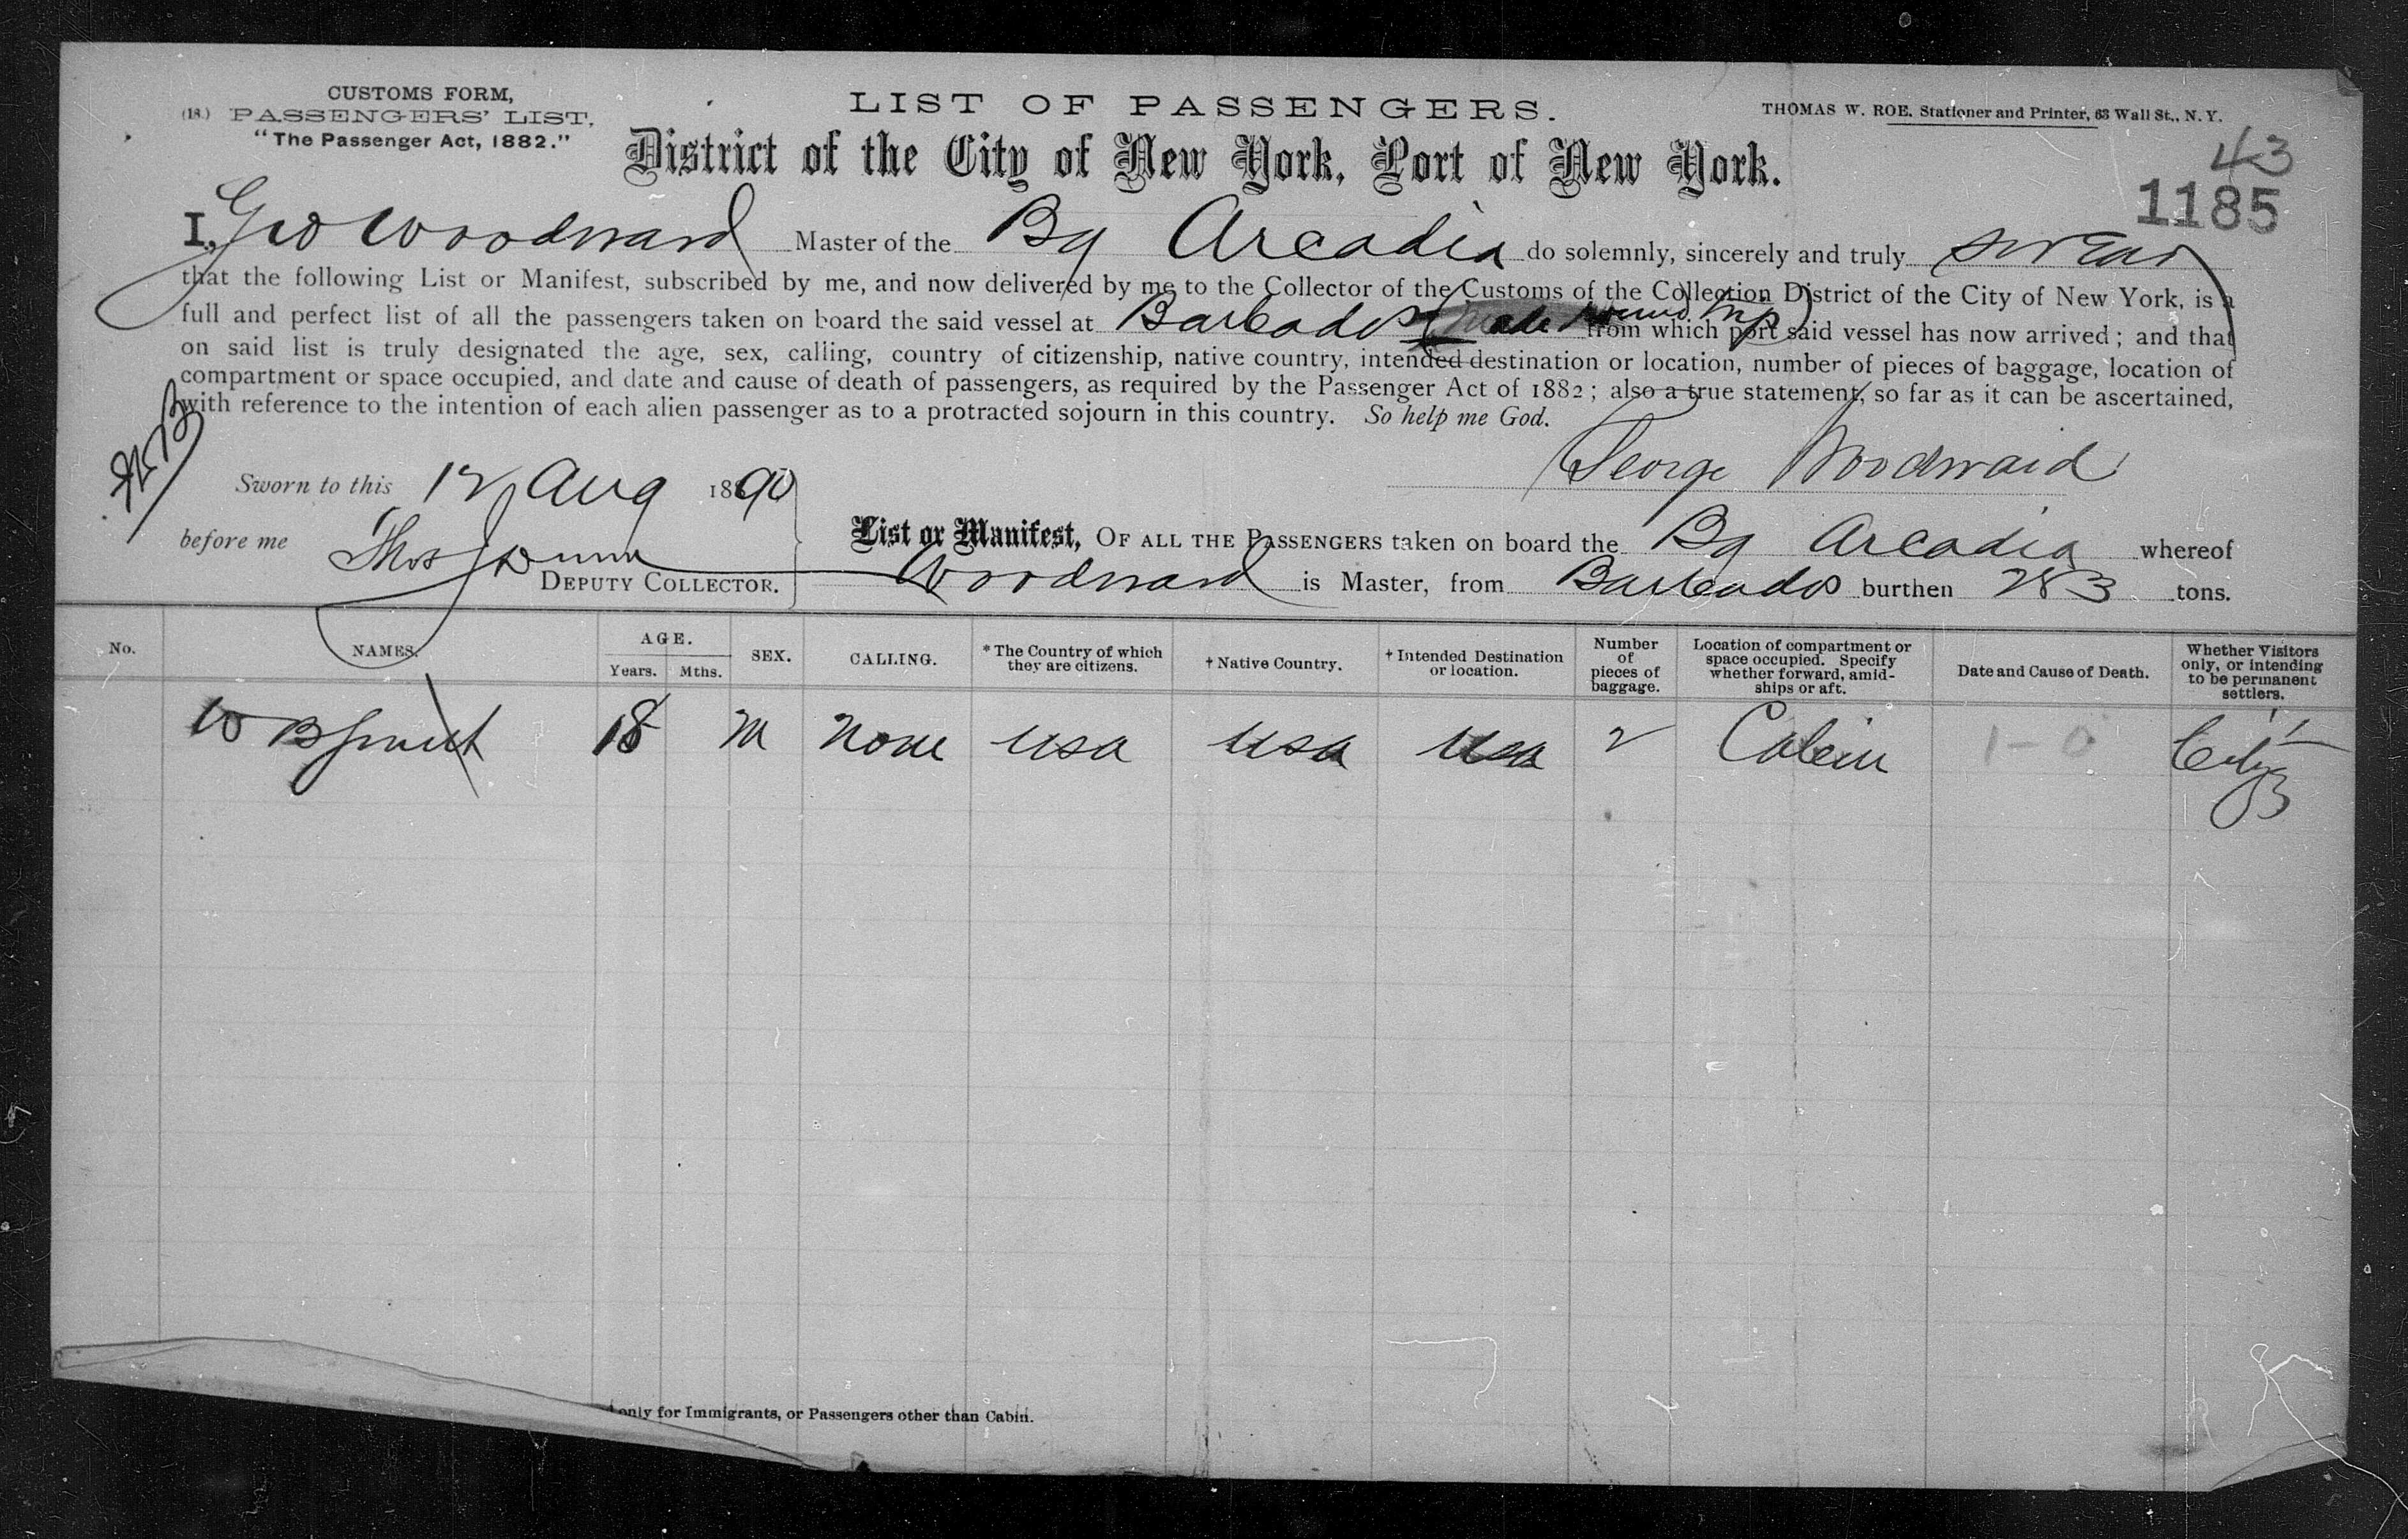 CUSTOMS FORM,
(18.) PASSENGERS' LIST,
"The Passenger Act, 1882."
LIST OF PASSENGERS.
THOMAS W. ROE, Stationer and Printer, 63 Wall St., N. Y.
District of the City of New York, Port of New York.
43
1185
I, Geo Woodward Master of the Bg Arcadia do solemnly, sincerely and truly swear
that the following List or Manifest, subscribed by me, and now delivered by me to the Collector of the Customs of the Collection District of the City of New York, is a
full and perfect list of all the passengers taken on board the said vessel at Barbados (made round trip) from which port said vessel has now arrived; and that
on said list is truly designated the age, sex, calling, country of citizenship, native country, intended destination or location, number of pieces of baggage, location of
compartment or space occupied, and date and cause of death of passengers, as required by the Passenger Act of 1882; also a true statement, so far as it can be ascertained,
with reference to the intention of each alien passenger as to a protracted sojourn in this country. So help me God.
George Woodward
Sworn to this 12 Aug 1890
before me Thos Dunn
DEPUTY COLLECTOR.
List or Manifest, OF ALL THE PASSENGERS taken on board the Bg Arcadia whereof
Woodward is Master, from Barbados burthen 283 tons.
No. NAMES. AGE. Years. Mths. SEX. CALLING. * The Country of which they are citizens. † Native Country. † Intended Destination or location. Number of pieces of baggage. Location of compartment or space occupied. Specify whether forward, amidships or aft. Date and Cause of Death. Whether Visitors only, or intending to be permanent settlers.
W B 18 M None USA USA USA 2 Cabin 1-0
only for Immigrants, or Passengers other than Cabin.